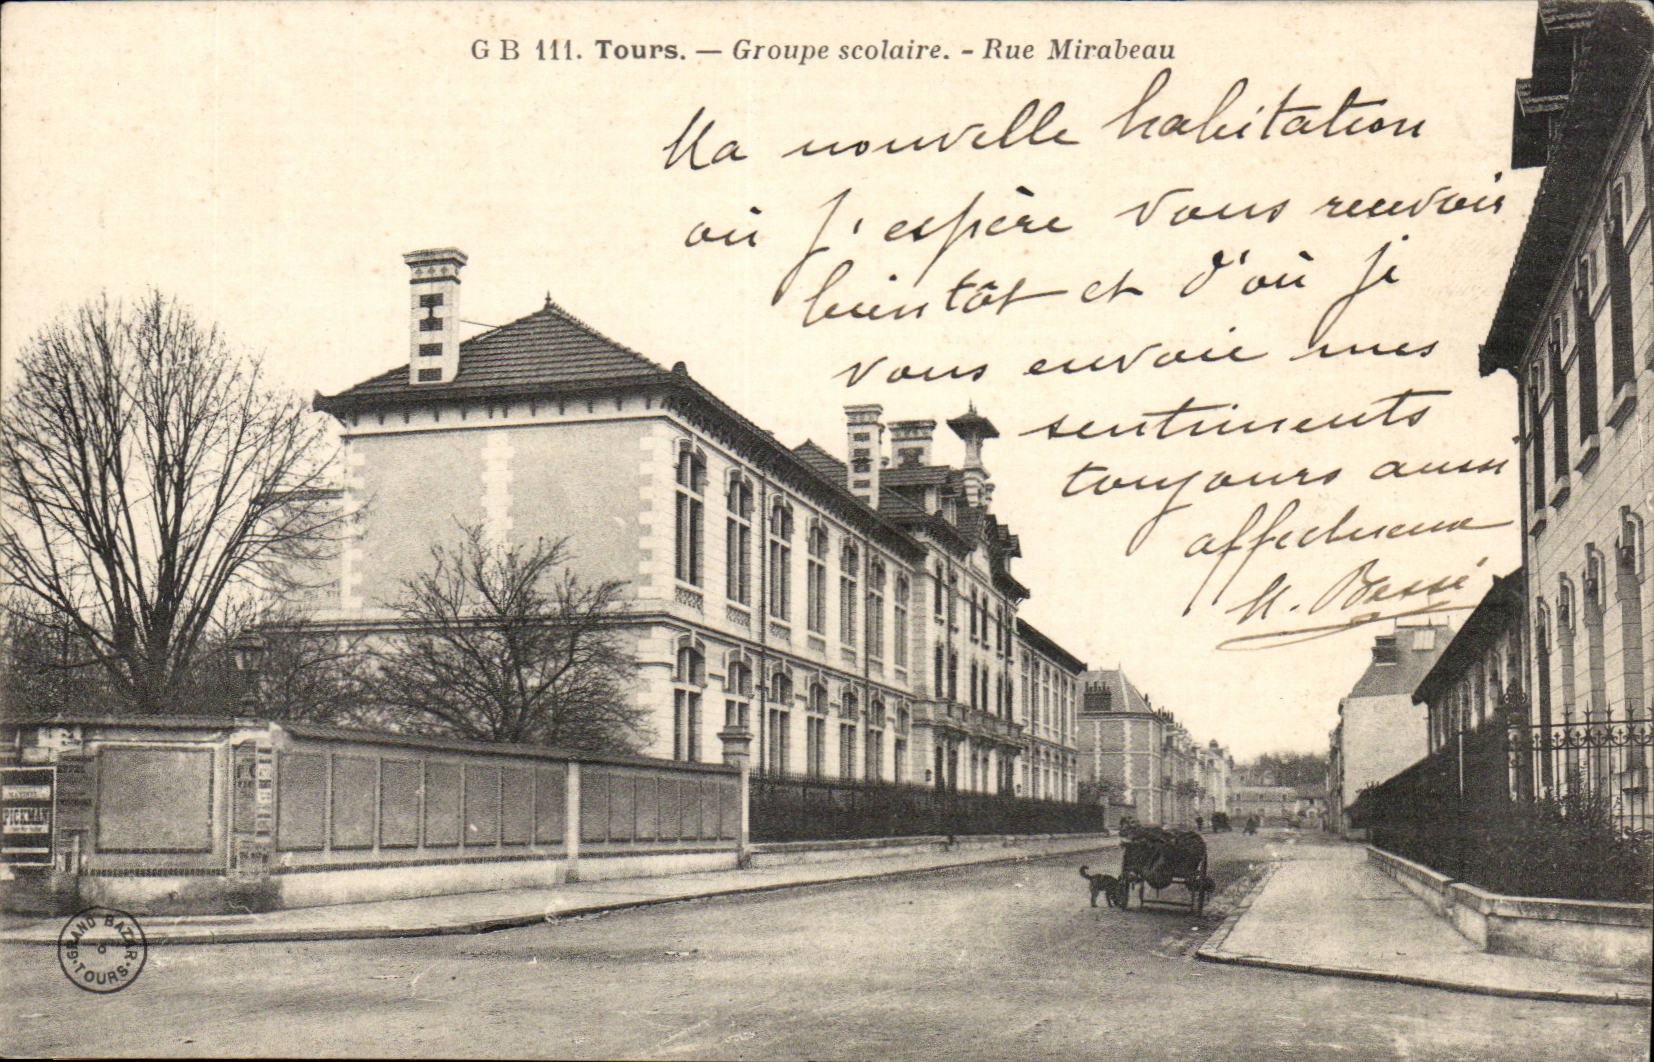 G B 111. Tours. — Groupe scolaire. - Rue Mirabeau
Ma nouvelle habitation
où j'espère vous recevoir
bientôt et d'où je
vous envoie mes
sentiments
toujours aussi
affectueux
M. Bassé
PICKMAN
GRAND BAZAR
TOURS